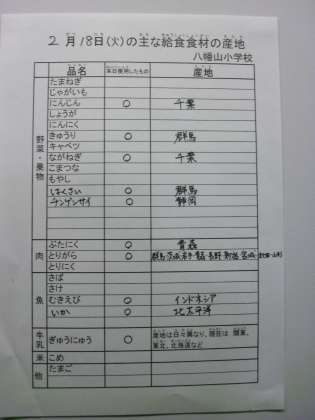 2月18日(火)の主な給食食材の産地
八幡山小学校
品名 本日使用したもの 産地
野菜・果物
たまねぎ
じゃがいも
にんじん ○ 千葉
しょうが
にんにく
きゅうり ○ 群馬
キャベツ
ながねぎ ○ 千葉
こまつな
もやし
はくさい ○ 群馬
チンゲンサイ ○ 静岡
肉
ぶたにく ○ 青森
とりがら ○ 群馬・茨城・岩手
とりにく
魚
さば
さけ
むきえび ○ インドネシア
いか ○ 北太平洋
牛乳
ぎゅうにゅう ○ 産地は日々異なり、現在は 関東、
東北、北海道など
米 こめ
他 たまご